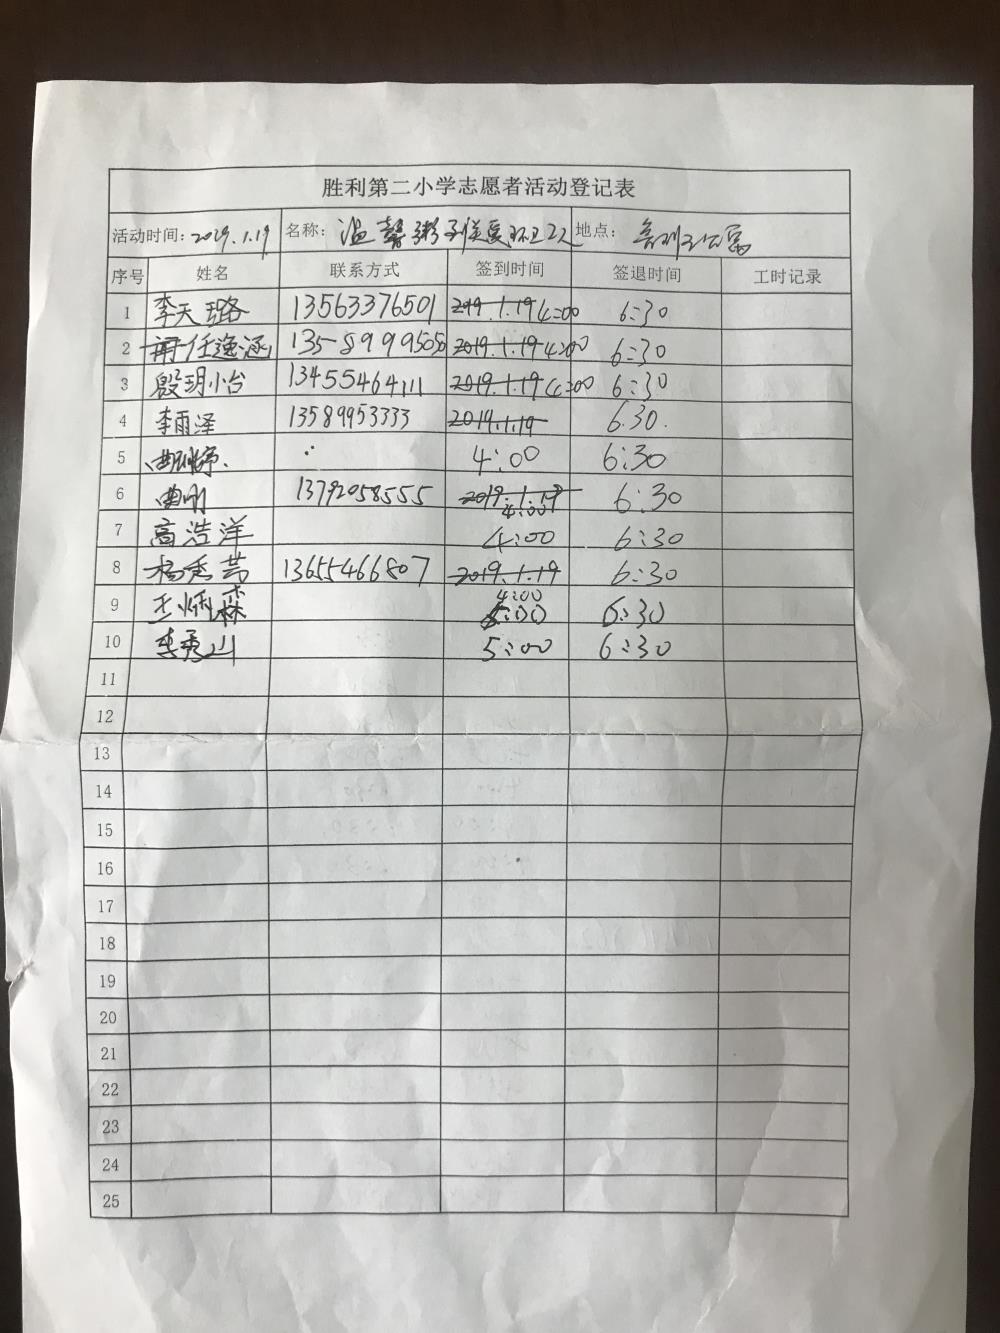 胜利第二小学志愿者活动登记表
活动时间: 2019.1.19 名称: 温馨粥 环卫工人 地点:
序号 姓名 联系方式 签到时间 签退时间 工时记录
1 李天璐 13563376501 2019.1.19 4:00 6:30
2 任逸涵 13589995050 2019.1.19 4:00 6:30
3 殷玥小台 13455464111 2019.1.19 4:00 6:30
4 李雨泽 13589953333 2019.1.19 6:30.
5 4:00 6:30
6 曲刚 13792058555 2019.1.19 4:00 6:30
7 高浩洋 4:00 6:30
8 杨秀芸 13655466807 2019.1.19 4:00 6:30
9 王炳森 5:00 6:30
10 李秀山 5:00 6:30
11
12
13
14
15
16
17
18
19
20
21
22
23
24
25